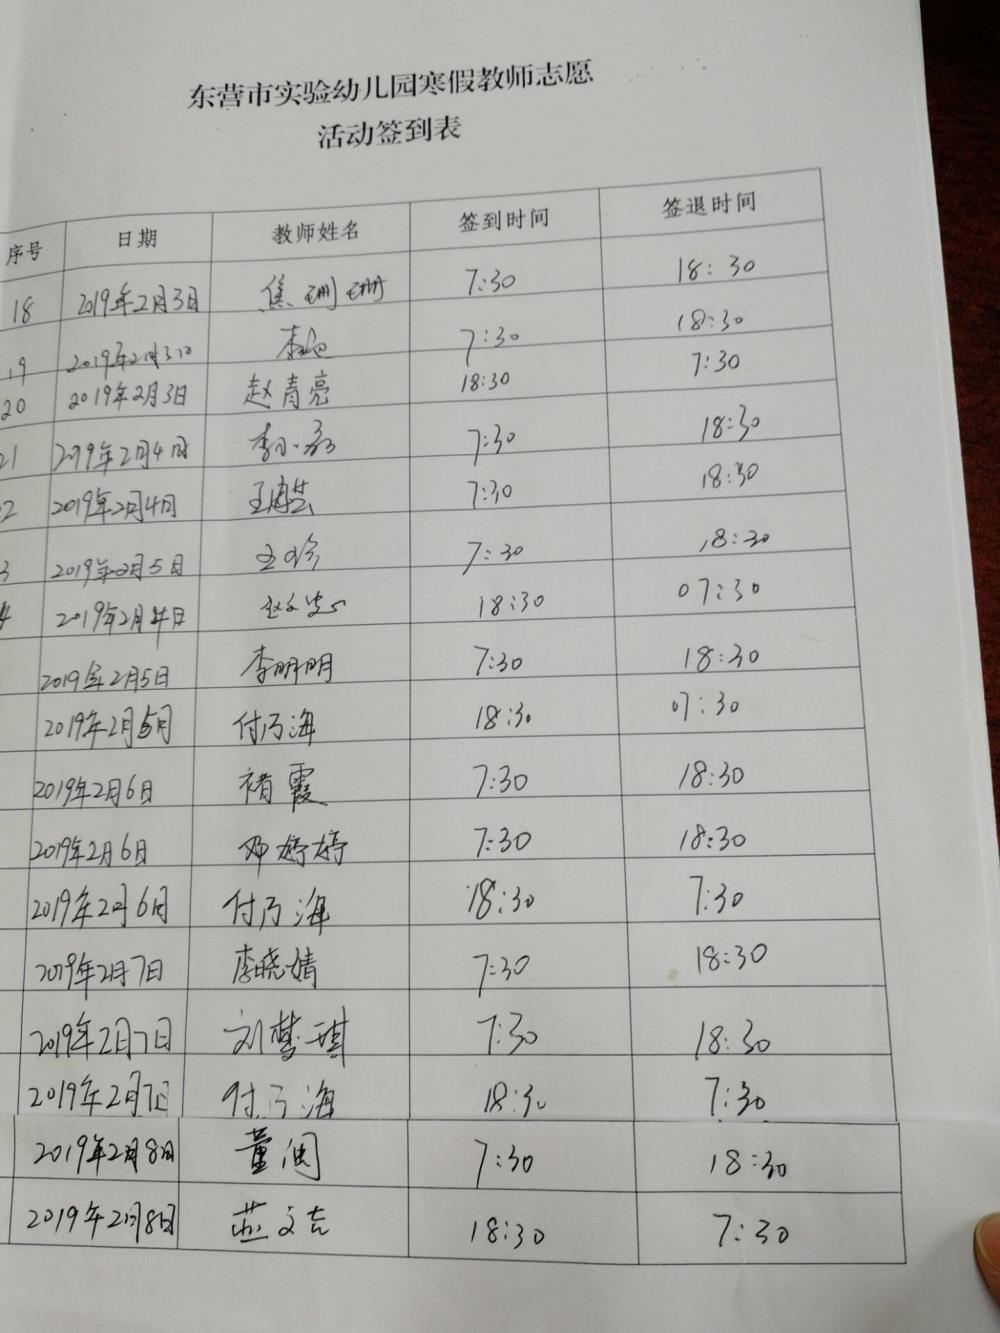 东营市实验幼儿园寒假教师志愿
活动签到表
序号 日期 教师姓名 签到时间 签退时间
18 2019年2月3日 焦珊珊 7:30 18:30
19 2019年2月3日 李 7:30 18:30
20 2019年2月3日 赵青亮 18:30 7:30
21 2019年2月4日 李小 7:30 18:30
2 2019年2月4日 王 7:30 18:30
3 2019年2月5日 王 7:30 18:30
4 2019年2月4日 赵 18:30 07:30
2019年2月5日 李明明 7:30 18:30
2019年2月5日 付乃海 18:30 07:30
2019年2月6日 褚霞 7:30 18:30
2019年2月6日 邓婷婷 7:30 18:30
2019年2月6日 付乃海 18:30 7:30
2019年2月7日 李晓婧 7:30 18:30
2019年2月7日 刘梦琪 7:30 18:30
2019年2月7日 付乃海 18:30 7:30
2019年2月8日 董闽 7:30 18:30
2019年2月8日 燕文吉 18:30 7:30